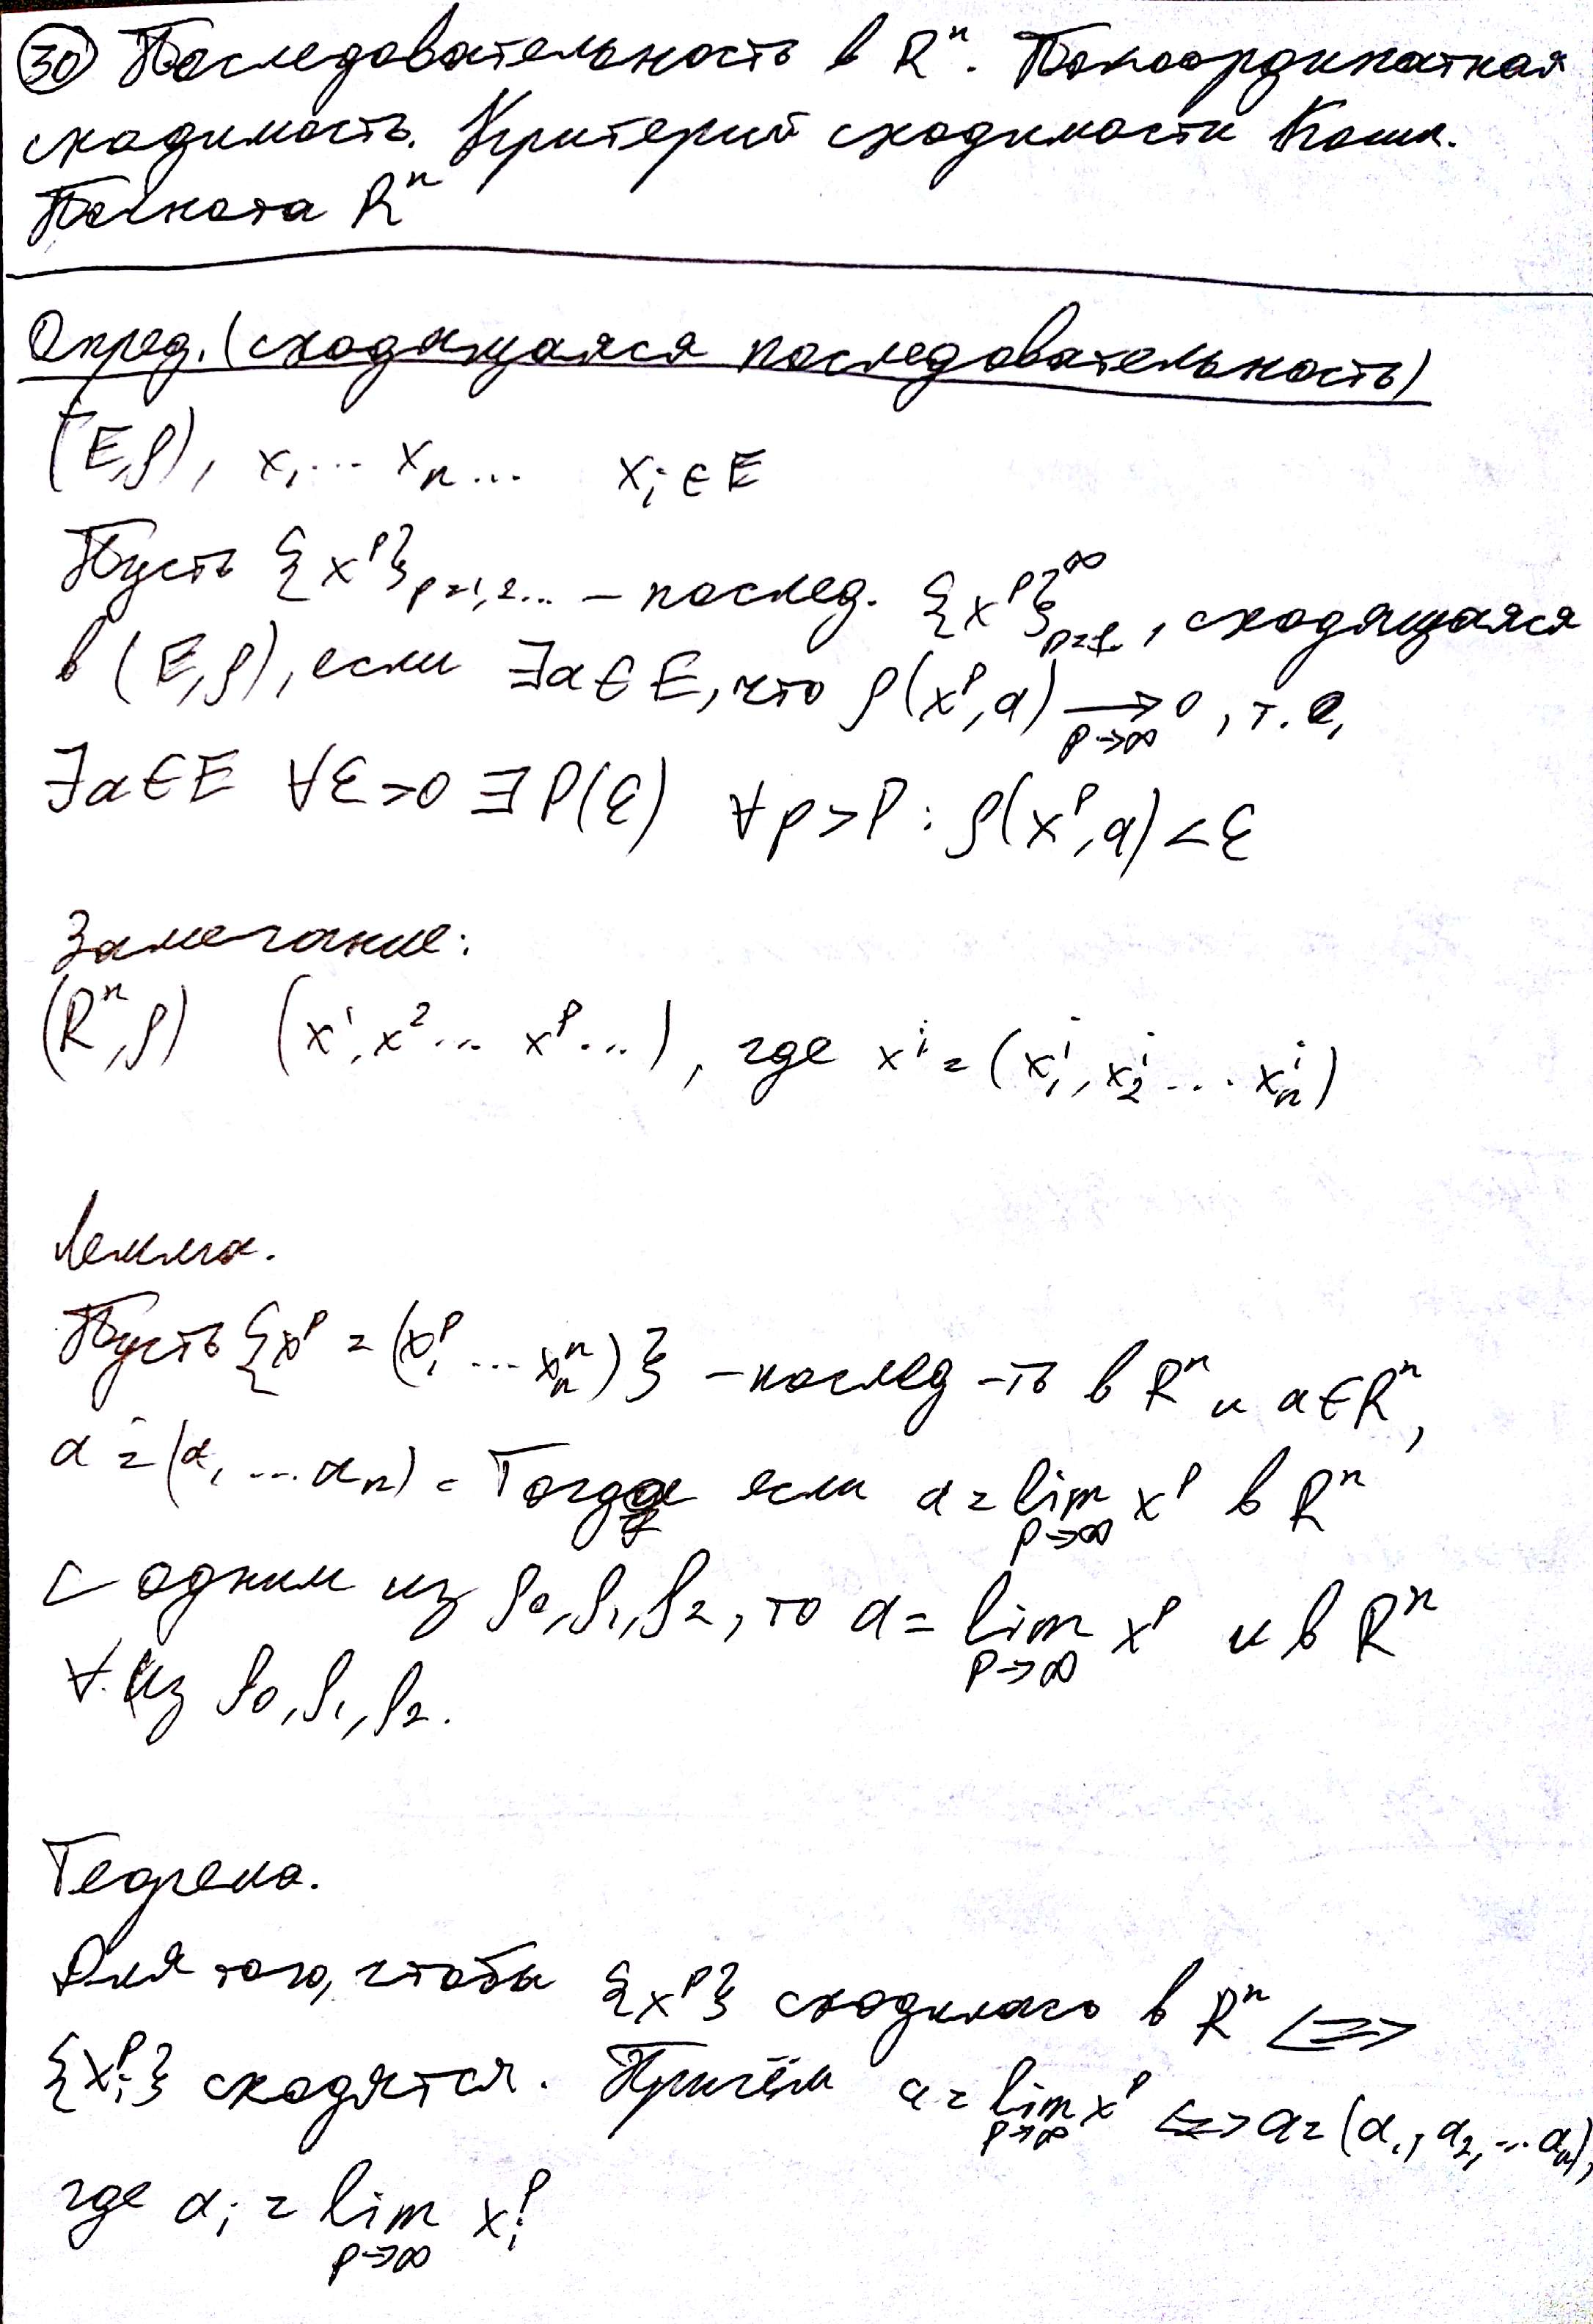 30 Последовательность в Rⁿ. Покоординатная
сходимость. Критерий сходимости Коши.
Полнота Rⁿ
Опред. (сходящаяся последовательность)
(E,ρ), x₁ ... xₙ ... xᵢ ∈ E
Пусть {xᵖ}ₚ₌₁,₂... – послед. {xᵖ}ₚ₌₁^∞, сходящаяся
в (E,ρ), если ∃a∈E, что ρ(xᵖ,a) →(p→∞) 0, т.е.
∃a∈E ∀ε>0 ∃P(ε) ∀p>P : ρ(xᵖ,a)<ε
Замечание:
(Rⁿ,ρ) (x¹, x² ... xᵖ ...), где xⁱ = (x₁ⁱ, x₂ⁱ ... xₙⁱ)
Лемма.
Пусть {xᵖ = (x₁ᵖ ... xₙⁿ)} – послед-ть в Rⁿ и a∈Rⁿ,
a = (a₁ ... aₙ). Тогда если a = lim(p→∞) xᵖ в Rⁿ
с одним из ρ₀, ρ₁, ρ₂, то a = lim(p→∞) xᵖ и в Rⁿ
∀ из ρ₀, ρ₁, ρ₂.
Теорема.
Для того, чтобы {xᵖ} сходилась в Rⁿ <=>
{xᵢᵖ} сходятся. Причём a = lim(p→∞) xᵖ <=> a = (a₁, a₂, ... aₙ),
где aᵢ = lim(p→∞) xᵢᵖ